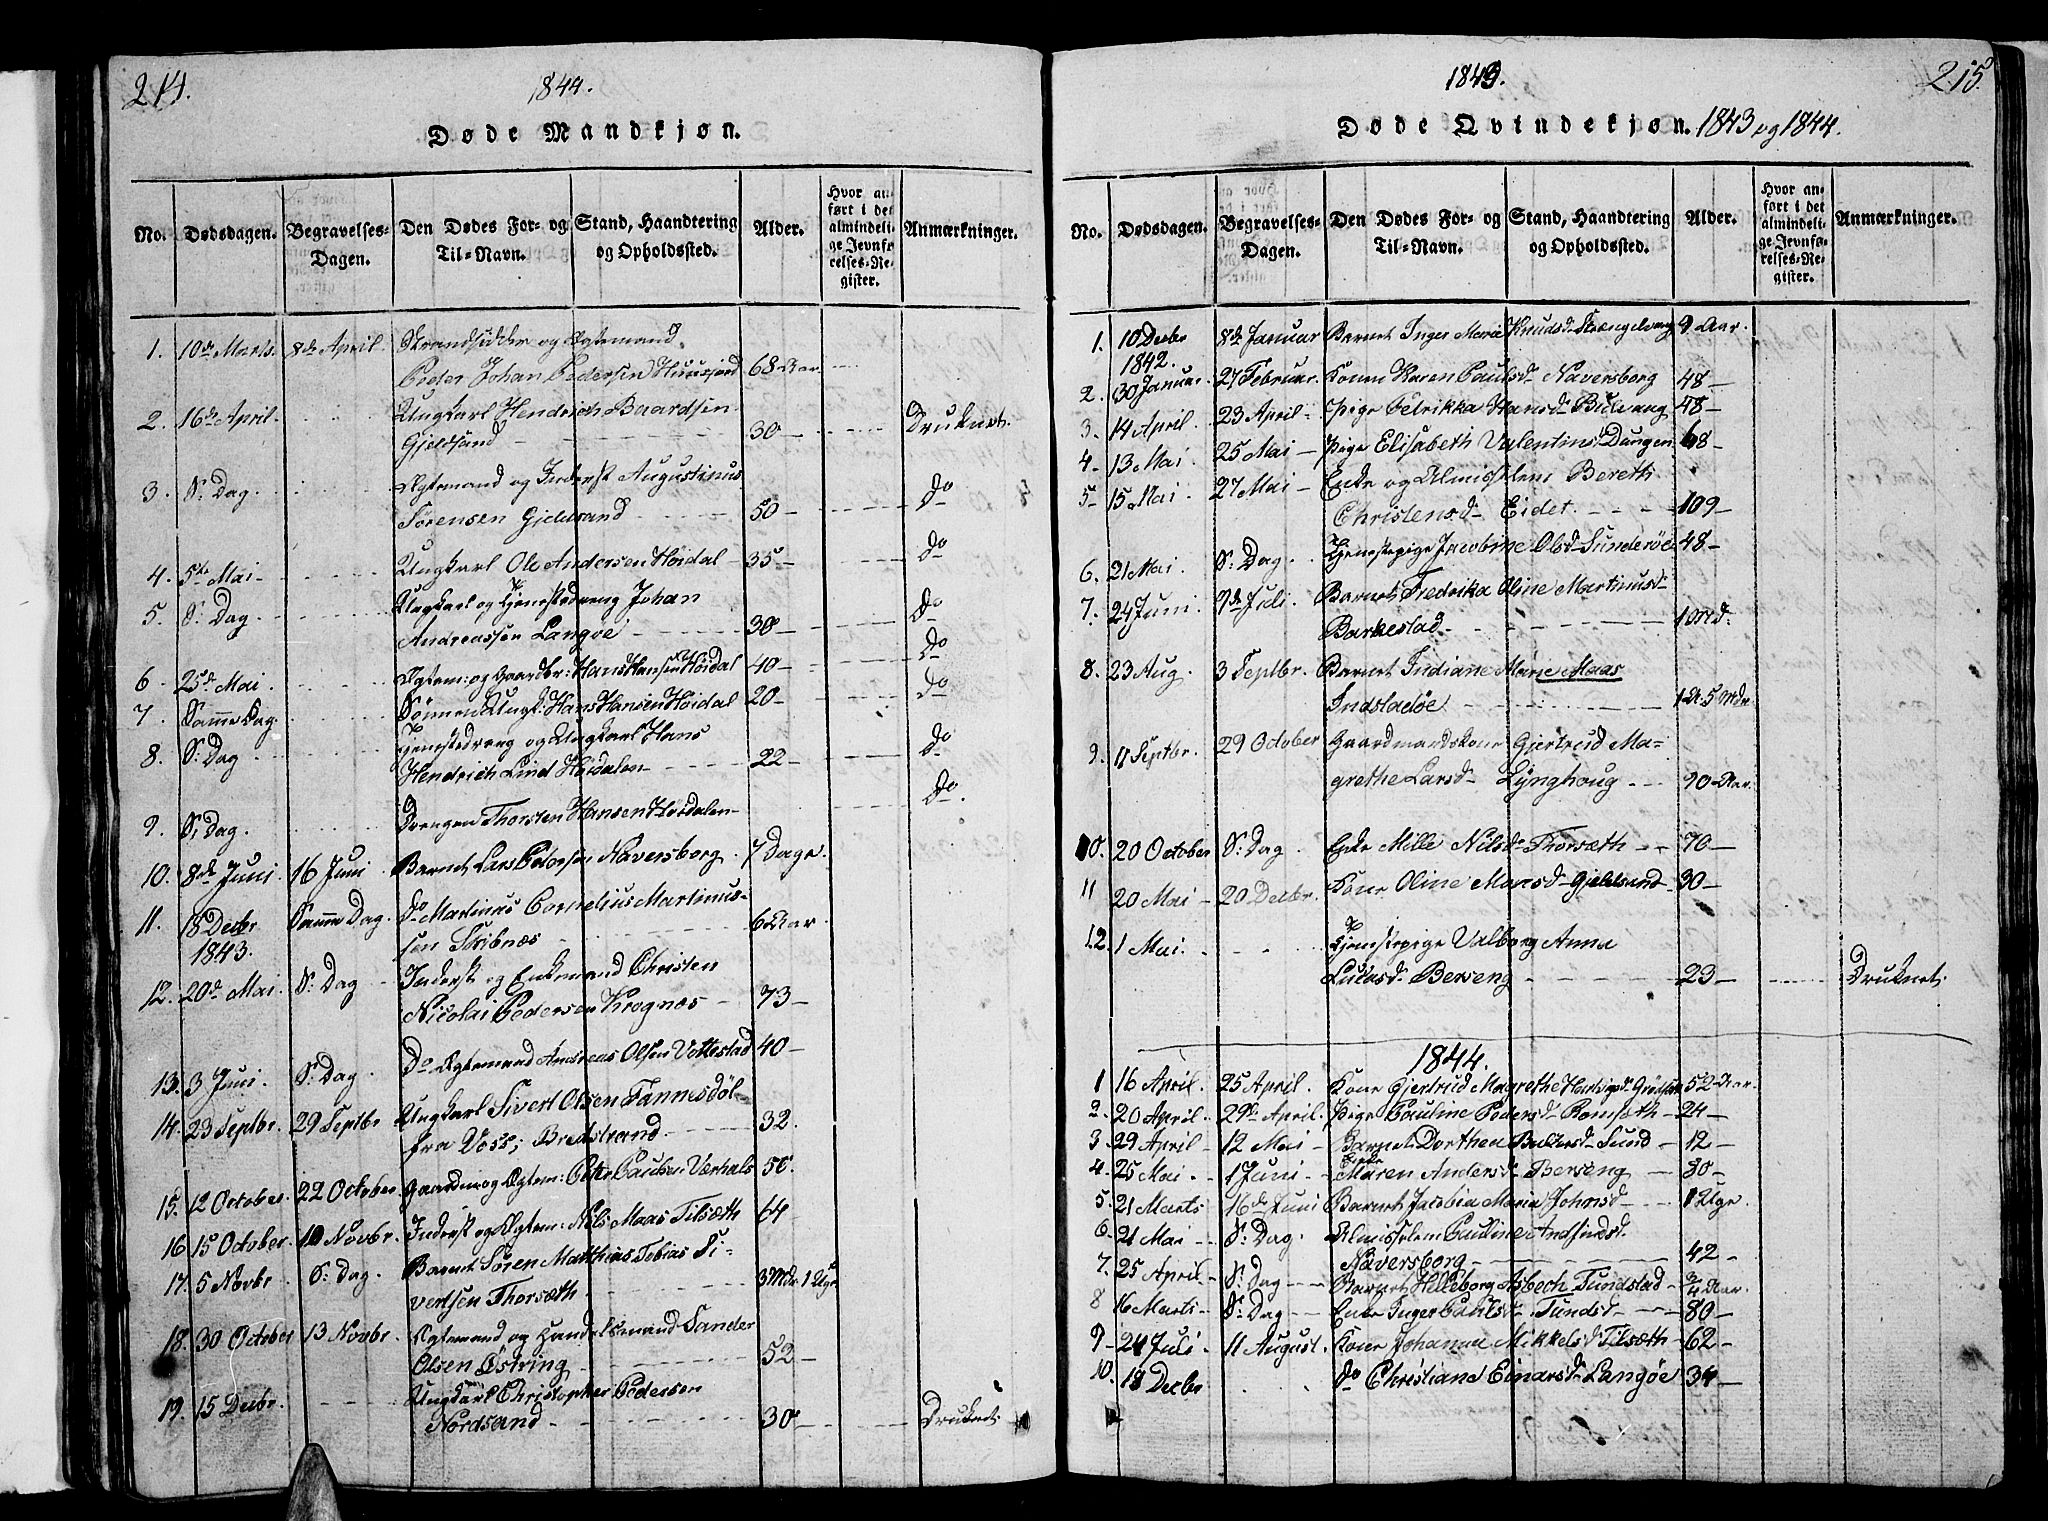 214.
1844.
Døde Mandkjøn.
No. Dødsdagen. Begravelses-Dagen. Den Dødes For- og Til-Navn. Stand, Haandtering og Opholdssted. Alder. Hvor anført i det almindelige Jevnførelses-Register. Anmærkninger.
1. 10de Marts. 8de April. Strandsidder og Egtemand
Peder Johan Pedersen Huusjord 68 Aar.
2. 16de April. Ungkarl Hendrich Baardsen
Gjeldsand 30 Druknet.
3. S: Dag. Egtemand og Inderst Augustinus
Sørensen Gjeldsand 50 Do
4. 5te Mai Ungkarl Ole Andersen Høidal 35 Do
5. S: Dag. Ungkarl og Tjenestedreng Johan
Andreassen Langøe 30 Do
6. 25de Mai Egtem: og Gaardbr: Hans Hansen Høidal 40 Do
7. Samme Dag. Sønnen Ungk: Hans Hansen Høidal 20 Do
8. S: Dag Tjenestedreng og Ungkarl Hans
Hendrich Lind Høidalen 22 Do
9. S: Dag. Drengen Thorsten Hansen Høidalen Do.
10. 8de Juni 16 Juni Barnet Lars Pedersen Naversborg. 7 Dage.
11. 18 Decbr Samme Dag. Do Martinus Cornelius Martinus-
1843. sen Skibnæs 6 Aar
12. 20de Mai. S: Dag Inderst og Enkemand Christen
Nicolai Pedersen Krognæs 73
13. 3 Juni. S: Dag. Do Egtemand Andreas Olsen Vottestad 40
14. 23 Septbr. 29 Septbr Ungkarl Sivert Olsen Tannesdøl
fra Voss; Breistrand 32.
15. 12 October. 22 October Gaardm: og Egtem: Peter Paulsen Værhals 50.
16 15 October. 10 Novbr. Inderst og Egtem: Nils Maas Tilsæth 64
17. 5 Novbr S: Dag. Barnet Søren Matthias Tobias Si-
vertsen Thorsæth. 3 Mdr 1 Uge
18. 30 October 13 Novbr. Egtemand og Handelsmand Sander
Olsen Østring 52
19. 15 Decbr. Ungkarl Christopher Pedersen
Nordsand 30 Druknet.
1843.
215.
Døde Qvindekjøn. 1843 og 1844.
No. Dødsdagen. Begravelses-Dagen. Den Dødes For- og Til-Navn. Stand, Haandtering og Opholdssted. Alder. Hvor anført i det almindelige Jevnførelses-Register. Anmærkninger.
1. 10 Decbr 8de Januar Barnet Inger Maria Knudsd Stængelvaag 9 Aar.
1842.
2. 30 Januar. 27 Februar. Konen Karen Paulsd Naversborg 48
3. 14 April. 23 April Pige Fedrikka Hansd Bidevaag 48
4 13 Mai. 25 Mai Pige Elisabeth Valentinsd Daugen 68
5 15 Mai. 27 Mai Enke og Almisselem Bereth
Christensd Eidet. 109
6. 21 Mai. S: Dag. Tjenestepige Jacobine Olsd Sunderøe 48
7. 24 Juni. 9de Juli. Barnet Fredrika Oline Martinusd
Barkestad 1 Md.
8. 23 Aug. 3 Septbr. Barnet Indiane Marie Maas
Indstadøe 1 A. 5 Mdr
9. 17 Septbr. 29 October Gaardmandskone Gjertrud Ma-
grethe Larsd Lynghoug 90 Aar.
10. 20 October S: Dag. Enke Mille Nilsd Thorsæth 70
11 20 Mai 20 Decbr. Kone Oline Monsd Gjeldsand 30
12. 1 Mai. Tjenestepige Valborg Anna
Lucasd Berseng 23 Druknet.
1844.
1 16 April. 25 April. Kone Gjertrud Magrethe Hartvigsd 52 Aar.
2. 20 April. 29de April. Pige Pauline Pedersd Romsæth 24
3. 29 April 12 Mai Barnet Dorthea Baltzersd Sund 12
4. 25 Mai 1 Juni Enke Maren Andersd Berseng 30
5. 21 Marts 16de Juni Barnet Jacobia Maria Johnsd 1 Uge
6. 21 Mai S: Dag. Almisselem Pauline Andfindsd.
Naversborg 42
7. 25 April S: Dag Barnet Helleborg Asbech Tundstad 3/4 Aar.
8 16 Marts S: Dag Enke Inger Paulsd Tundst 80
9 24 Juli 11 August. Kone Johanna Mikkelsd Tilsæth 62
10. 18 Decbr Do Christiane Einarsd Langøe 34